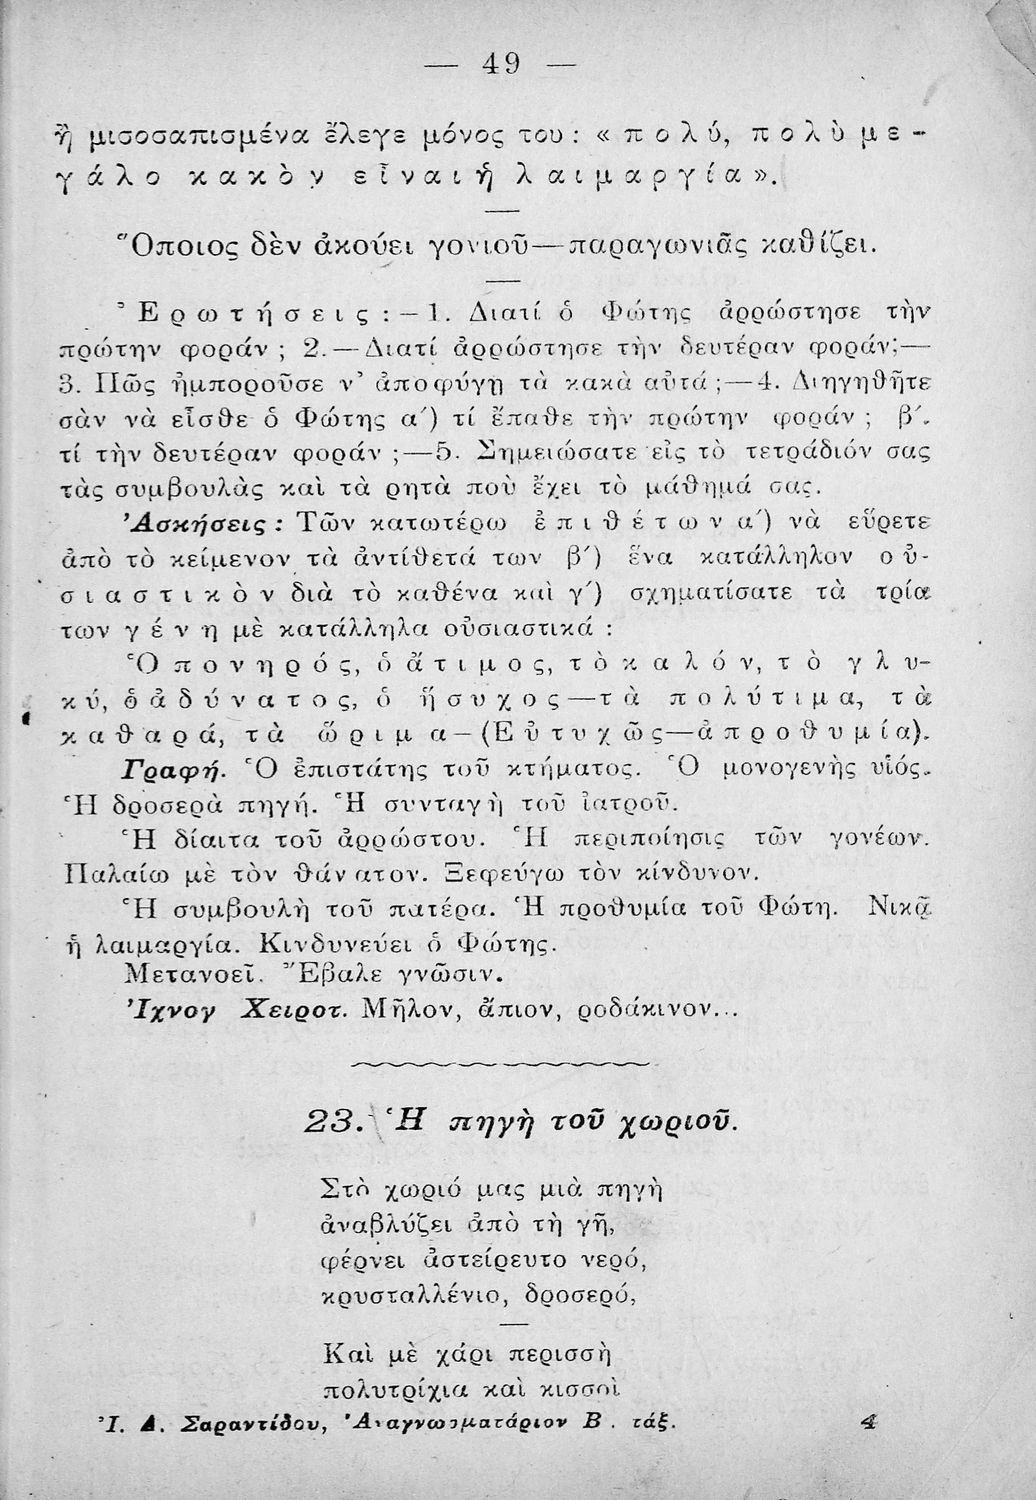 — 49 —
ἢ μισοσαπισμένα ἔλεγε μόνος του : « π ο λ ύ, π ο λ ὺ μ ε -
γ ά λ ο κ α κ ὸ ν ε ἶ ν α ι ἡ λ α ι μ α ρ γ ί α ».
Ὅποιος δὲν ἀκούει γονιοῦ—παραγωνιᾶς καθίζει.
Ἐ ρ ω τ ή σ ε ι ς : — 1. Διατί ὁ Φώτης ἀρρώστησε τὴν
πρώτην φοράν ; 2.—Διατί ἀρρώστησε τὴν δευτέραν φοράν;—
3. Πῶς ἠμποροῦσε ν’ ἀποφύγῃ τὰ κακὰ αὐτά ;—4. Διηγηθῆτε
σὰν νὰ εἶσθε ὁ Φώτης α΄) τί ἔπαθε τὴν πρώτην φοράν ; β΄.
τί τὴν δευτέραν φοράν ;—5. Σημειώσατε εἰς τὸ τετράδιόν σας
τὰς συμβουλὰς καὶ τὰ ρητὰ ποὺ ἔχει τὸ μάθημά σας.
Ἀσκήσεις : Τῶν κατωτέρω ἐ π ι θ έ τ ω ν α΄) νὰ εὕρετε
ἀπὸ τὸ κείμενον τὰ ἀντίθετά των β΄) ἕνα κατάλληλον ο ὐ -
σ ι α σ τ ι κ ὸ ν διὰ τὸ καθένα καὶ γ΄) σχηματίσατε τὰ τρία
των γ έ ν η μὲ κατάλληλα οὐσιαστικά :
Ὁ π ο ν η ρ ό ς, ὁ ἄ τ ι μ ο ς, τ ὸ κ α λ ό ν, τ ὸ γ λ υ -
κ ύ, ὁ ἀ δ ύ ν α τ ο ς, ὁ ἥ σ υ χ ο ς — τ ὰ π ο λ ύ τ ι μ α, τ ὰ
κ α θ α ρ ά, τ ὰ ὥ ρ ι μ α — (Ε ὐ τ υ χ ῶ ς — ἀ π ρ ο θ υ μ ί α).
Γραφή. Ὁ ἐπιστάτης τοῦ κτήματος. Ὁ μονογενὴς υἱός.
Ἡ δροσερὰ πηγή. Ἡ συνταγὴ τοῦ ἰατροῦ.
Ἡ δίαιτα τοῦ ἀρρώστου. Ἡ περιποίησις τῶν γονέων.
Παλαίω μὲ τὸν θάνατον. Ξεφεύγω τὸν κίνδυνον.
Ἡ συμβουλὴ τοῦ πατέρα. Ἡ προθυμία τοῦ Φώτη. Νικᾷ
ἡ λαιμαργία. Κινδυνεύει ὁ Φώτης.
Μετανοεῖ. Ἔβαλε γνῶσιν.
Ἰχνογ Χειροτ. Μῆλον, ἄπιον, ροδάκινον...
23. Ἡ πηγὴ τοῦ χωριοῦ.
Στὸ χωριό μας μιὰ πηγὴ
ἀναβλύζει ἀπὸ τὴ γῆ,
φέρνει ἀστείρευτο νερό,
κρυσταλλένιο, δροσερό,
Καὶ μὲ χάρι περισσὴ
πολυτρίχια καὶ κισσοὶ
Ἰ. Δ. Σαραντίδου, Ἀναγνωσματάριον Β . τάξ. 4